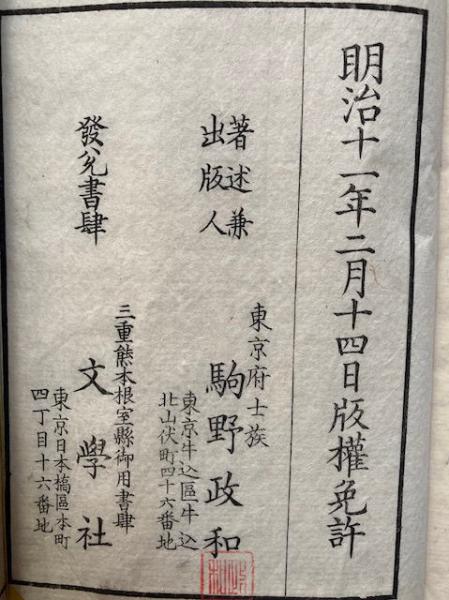 明治十一年二月十四日版權免許
著述兼
出版人
東京府士族
駒野政和
東京牛込區牛込
北山伏町四十六番地
發兌書肆
三重熊本根室縣御用書肆
文學社
東京日本橋區本町
四丁目十六番地